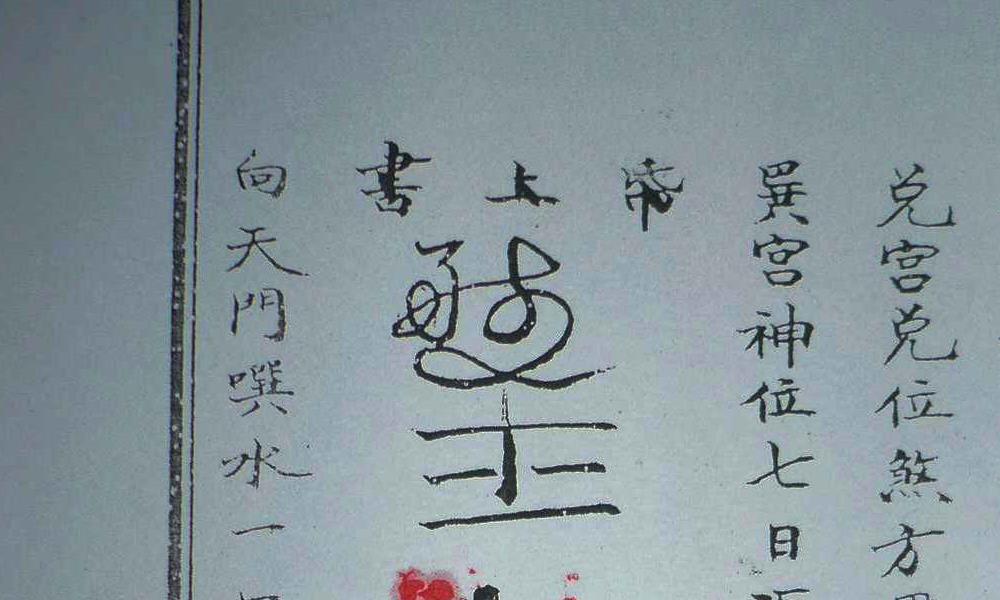 兑宮兑位煞方
巽宮神位七日
帝上書
向天門噀水一